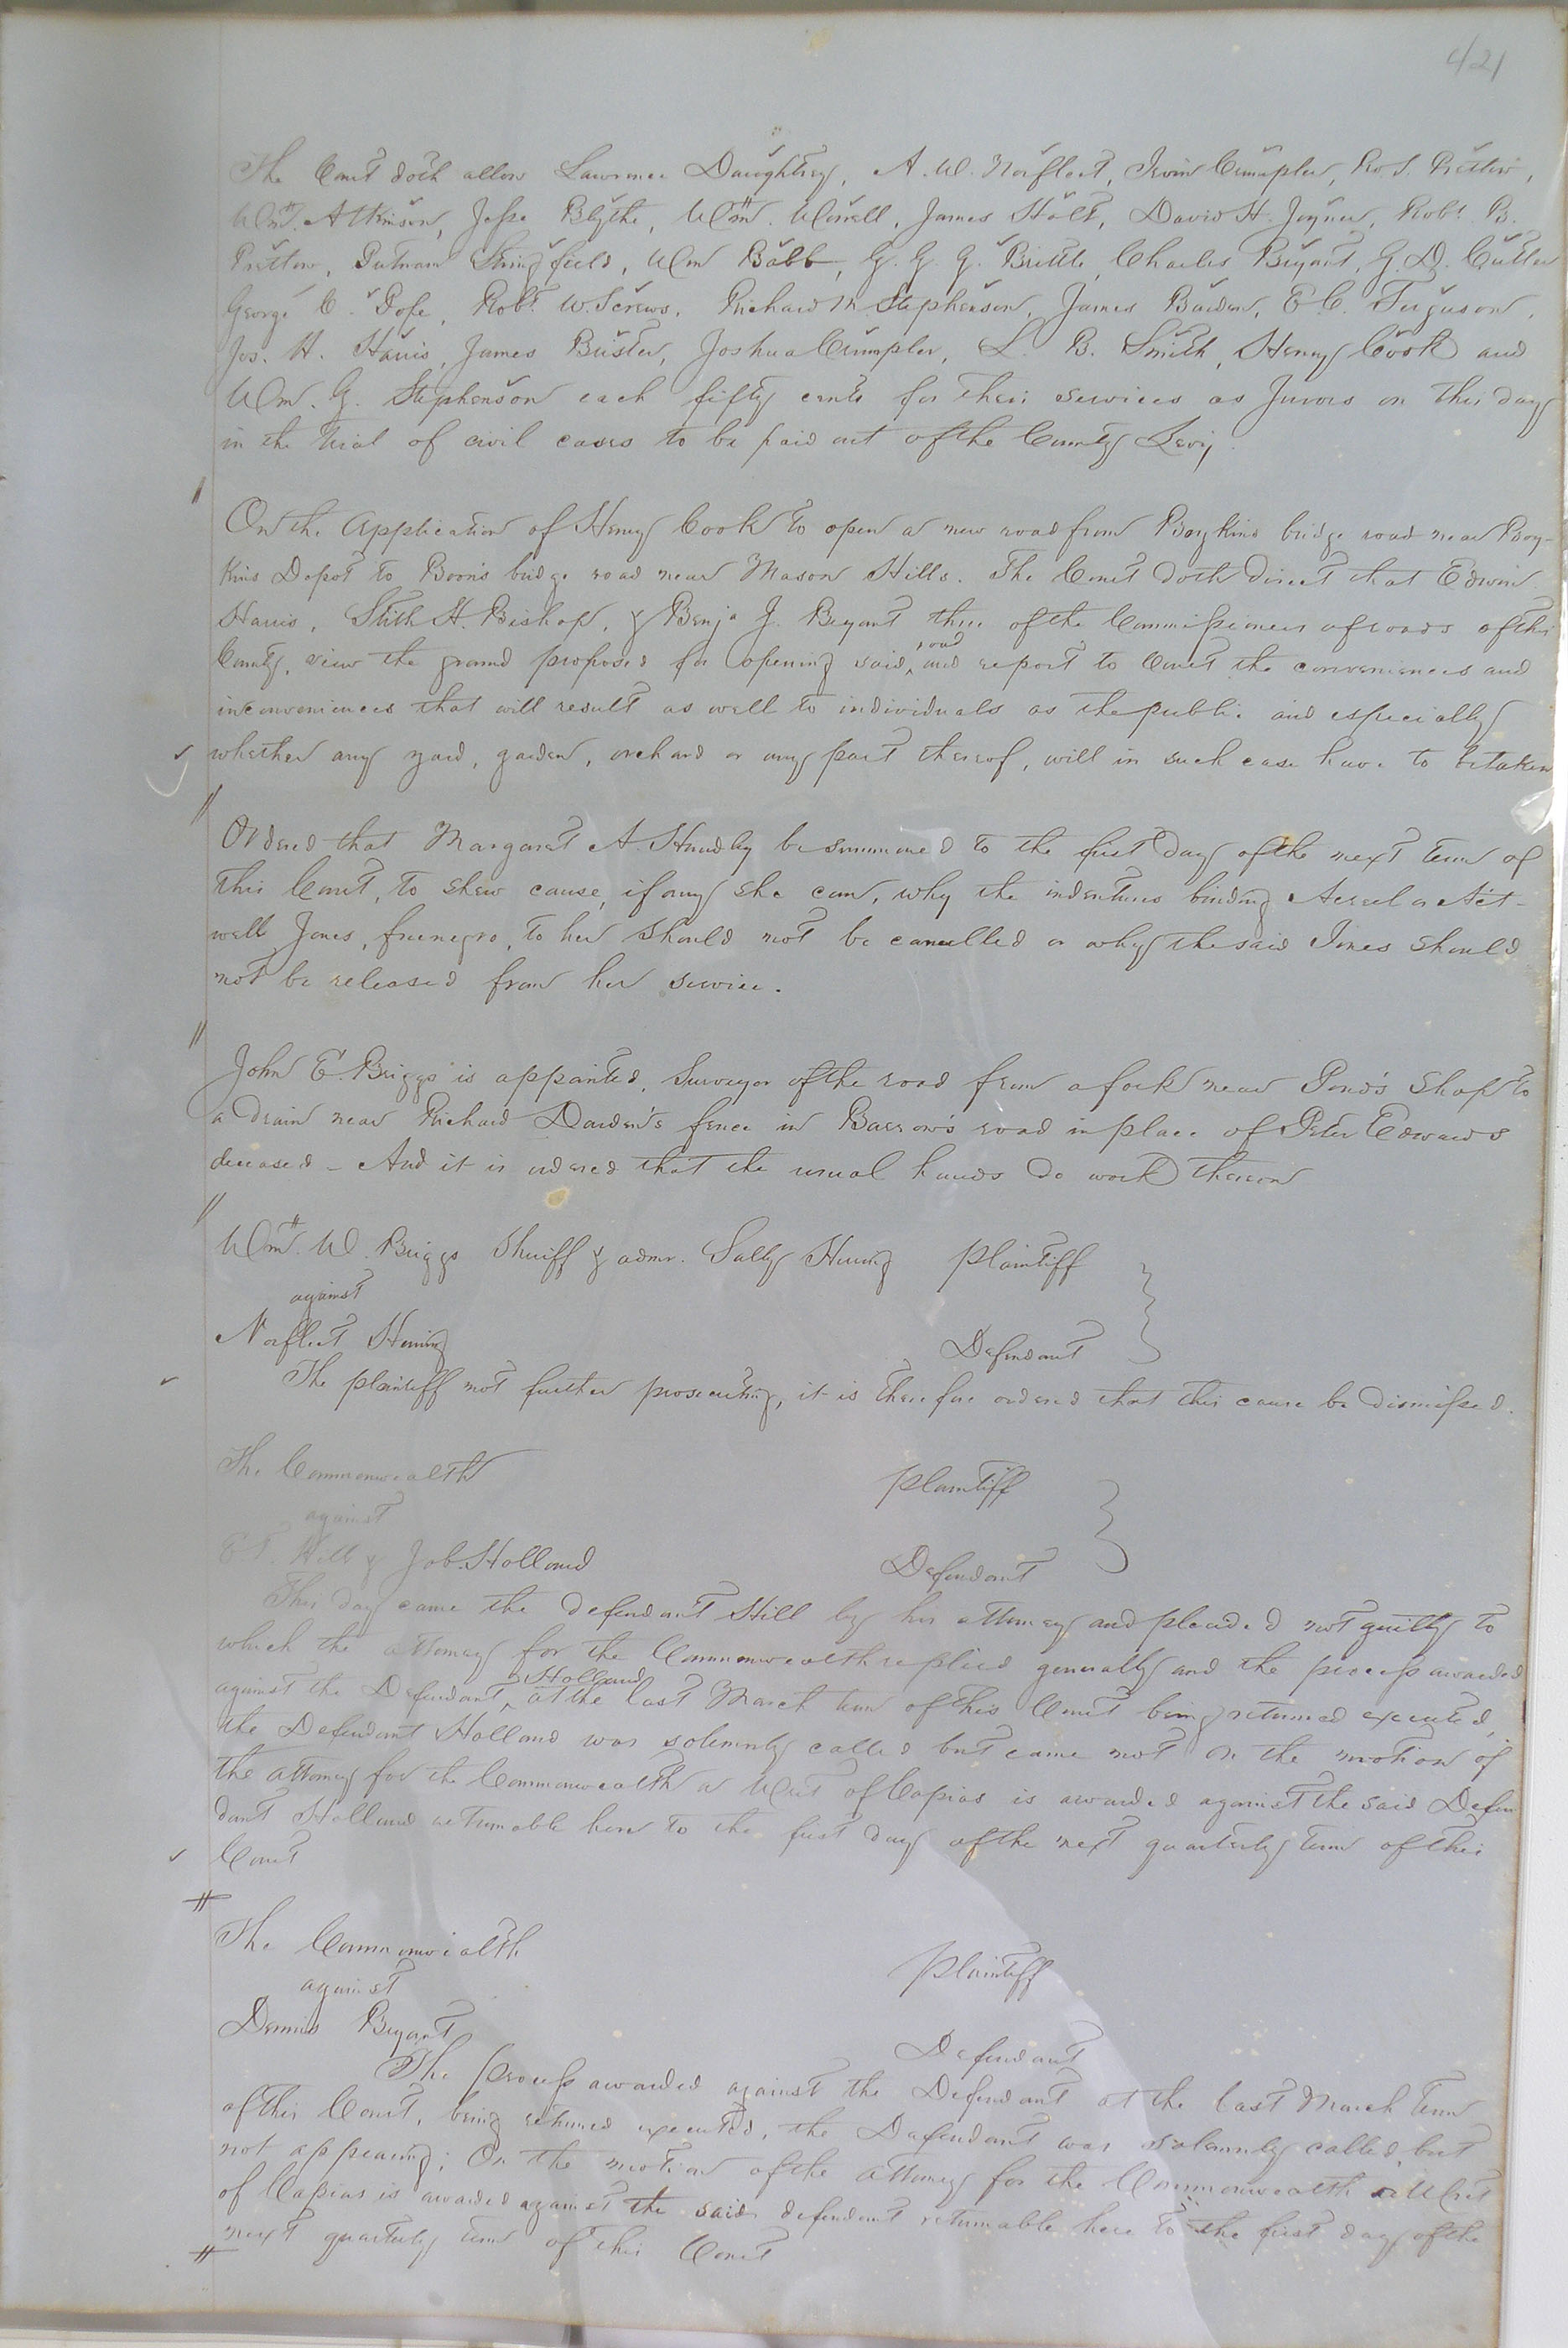 421
The Court doth allow Lawrence Daughtrey, A. W. Norfleet, Irvin Crumpler, Ro. S. Pretlow,
Wm. Atkinson, Jesse Blythe, Wm. Worrell, James Holt, David H. Joyner, Robt. B.
Pretlow, Putnam Stringfield, Wm Babb, G. G. G. Brittle, Charles Bryant, G. D. Cutler
George C. Pope, Robt. W. Screws, Richard M. Stephenson, James Barden, E. C. Ferguson,
Jos. H. Harris, James Bristen, Joshua Crumpler, L. B. Smith, Henry Cook and
Wm. G. Stephenson each fifty cents for their services as Jurors on this day
in the trial of civil cases to be paid out of the County Levy.
On the application of Henry Cook to open a new road from Boykins bridge road near Boy-
kins Depot to Boon's bridge road near Mason Hills. The Court doth direct that Edwin
Harris, Stith H. Bishop, & Benja J. Bryant three of the Commissioners of roads of this
County, view the ground proposed for opening said road and report to Court the conveniences and
inconveniences that will result as well to individuals as the public and especially
whether any yard, garden, orchard or any part thereof, will in such case have to be taken
Ordered that Margaret A. Hundley be summoned to the first day of the next term of
this Court, to shew cause, if any she can, why the indentures binding Act-
well Jones, free negro, to her should not be cancelled or why the said Jones should
not be released from her service.
John E. Briggs is appointed, Surveyor of the road from a fork near Pond's Shop to
a drain near Richard Darden's fence in Barrow's road in place of Peter Edwards
deceased - And it is ordered that the usual hands do work thereon
Wm. W. Briggs Sheriff & admr. Sally Hering plaintiff
against
Norfleet Hering Defendant
The plaintiff not further prosecuting, it is therefore ordered that this cause be dismissed.
The Commonwealth plaintiff
against
E T Hill & Job Holland Defendant
This day came the defendant Hill by his attorney and pleaded not guilty to
which the attorney for the Commonwealth replied generally and the process awarded
against the Defendant Holland at the last March term of this Court being returned executed,
the Defendant Holland was solemnly called but came not On the motion of
the attorney for the Commonwealth a Writ of Capias is awarded against the said Defen
dant Holland returnable here to the first day of the next quarterly term of this
Court
The Commonwealth plaintiff
against
Dennis Bryant Defendant
The process awarded against the Defendant at the last March term
of this Court, being returned executed, the Defendant was solemnly called, but
not appearing; On the motion of the attorney for the Commonwealth a Writ
of Capias is awarded against the said defendant returnable here to the first day of the
next quarterly term of this Court